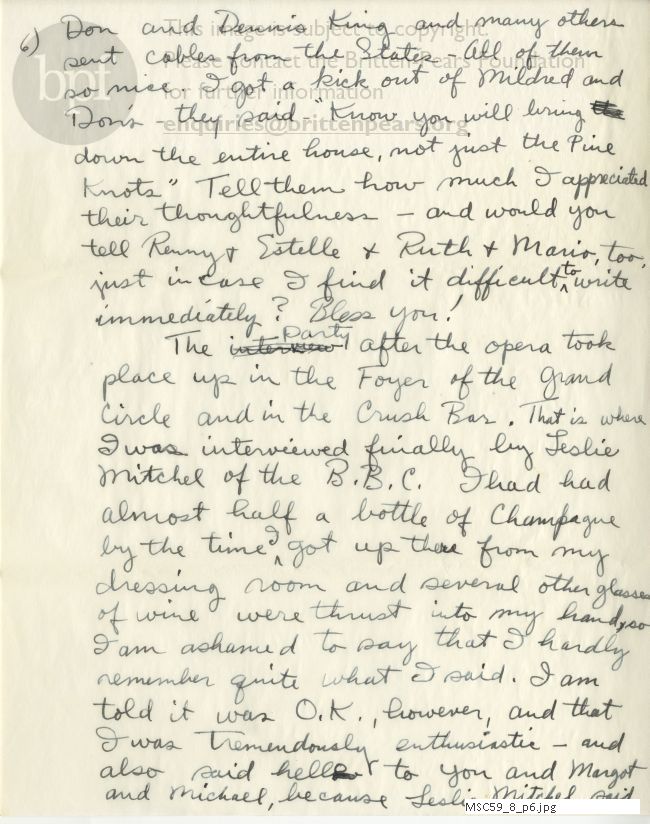 6) Don and Dennis King and many others
sent cables from the States - All of them
so nice. I got a kick out of Mildred and
Don's - they said - "Know you will bring the
down the entire house, not just the Pine
Knots" Tell them how much I appreciated
their thoughtfulness - and would you
tell Renny & Estelle & Ruth & Mario, too,
just in case I find it difficult to write
immediately? Bless you!
The interview party after the opera took
place up in the Foyer of the Grand
Circle and in the Crush Bar. That is where
I was interviewed finally by Leslie
Mitchel of the B.B.C. I had had
almost half a bottle of Champagne
by the time I got up there from my
dressing room and several other glasses
of wine were thrust into my hand, so
I am ashamed to say that I hardly
remember quite what I said. I am
told it was O.K., however, and that
I was tremendously enthusiastic - and
also said hello to you and Margot
and Michael, because Leslie Mitchel said
bpf
This image is subject to copyright.
Please contact the Britten-Pears Foundation
for further information
enquiries@brittenpears.org
MSC59_8_p6.jpg